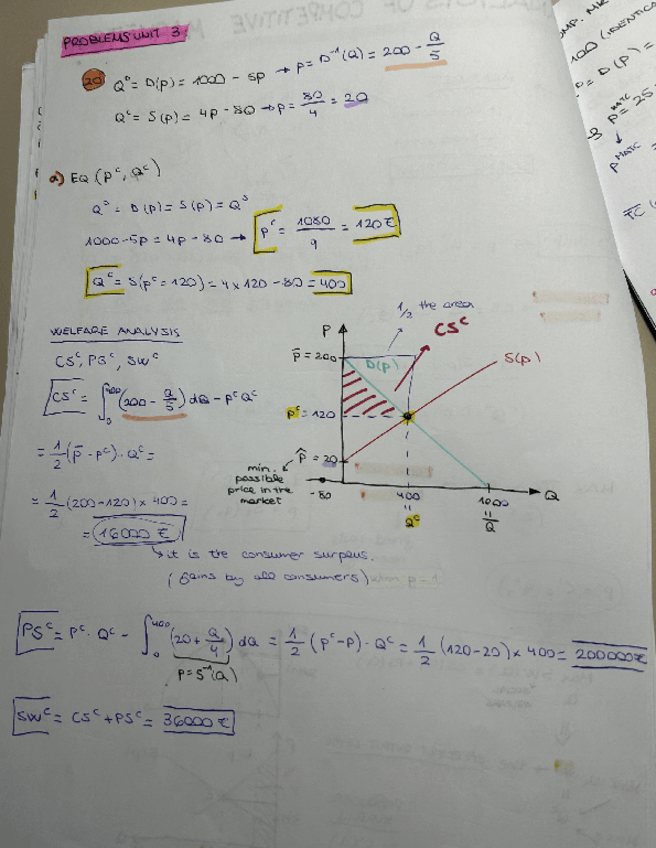 PROBLEMS UNIT 3
20 Q^D = D(p) = 1000 - 5p → p = D^-1(Q) = 200 - Q/5
Q^S = S(p) = 4p - 80 → p = 80/4 = 20
a) EQ (p^c, Q^c)
Q^D = D(p) = S(p) = Q^S
1000 - 5p = 4p - 80 → p^c = 1080/9 = 120€
Q^c = S(p^c = 120) = 4 x 120 - 80 = 400
WELFARE ANALYSIS
CS^c, PS^c, SW^c
CS^c = ∫_0^400 (200 - Q/5) dQ - p^c Q^c
= 1/2 (p̄ - p^c) · Q^c =
= 1/2 (200 - 120) x 400 =
= 16000 €
it is the consumer surplus.
(Gains by all consumers)
1/2 the area
CS^c
P
p̄ = 200
D(p)
S(p)
p^c = 120
p̂ = 20
min. possible price in the market
-80
400
=
Q^c
1000
=
Q̄
Q
PS^c = p^c · Q^c - ∫_0^400 (20 + Q/4) dQ = 1/2 (p^c - p) · Q^c = 1/2 (120 - 20) x 400 = 200000€
p = S^-1(Q)
SW^c = CS^c + PS^c = 36000 €
100 (IDENTICA
= D(p) =
p^MATC = 25
p^MATC =
TC